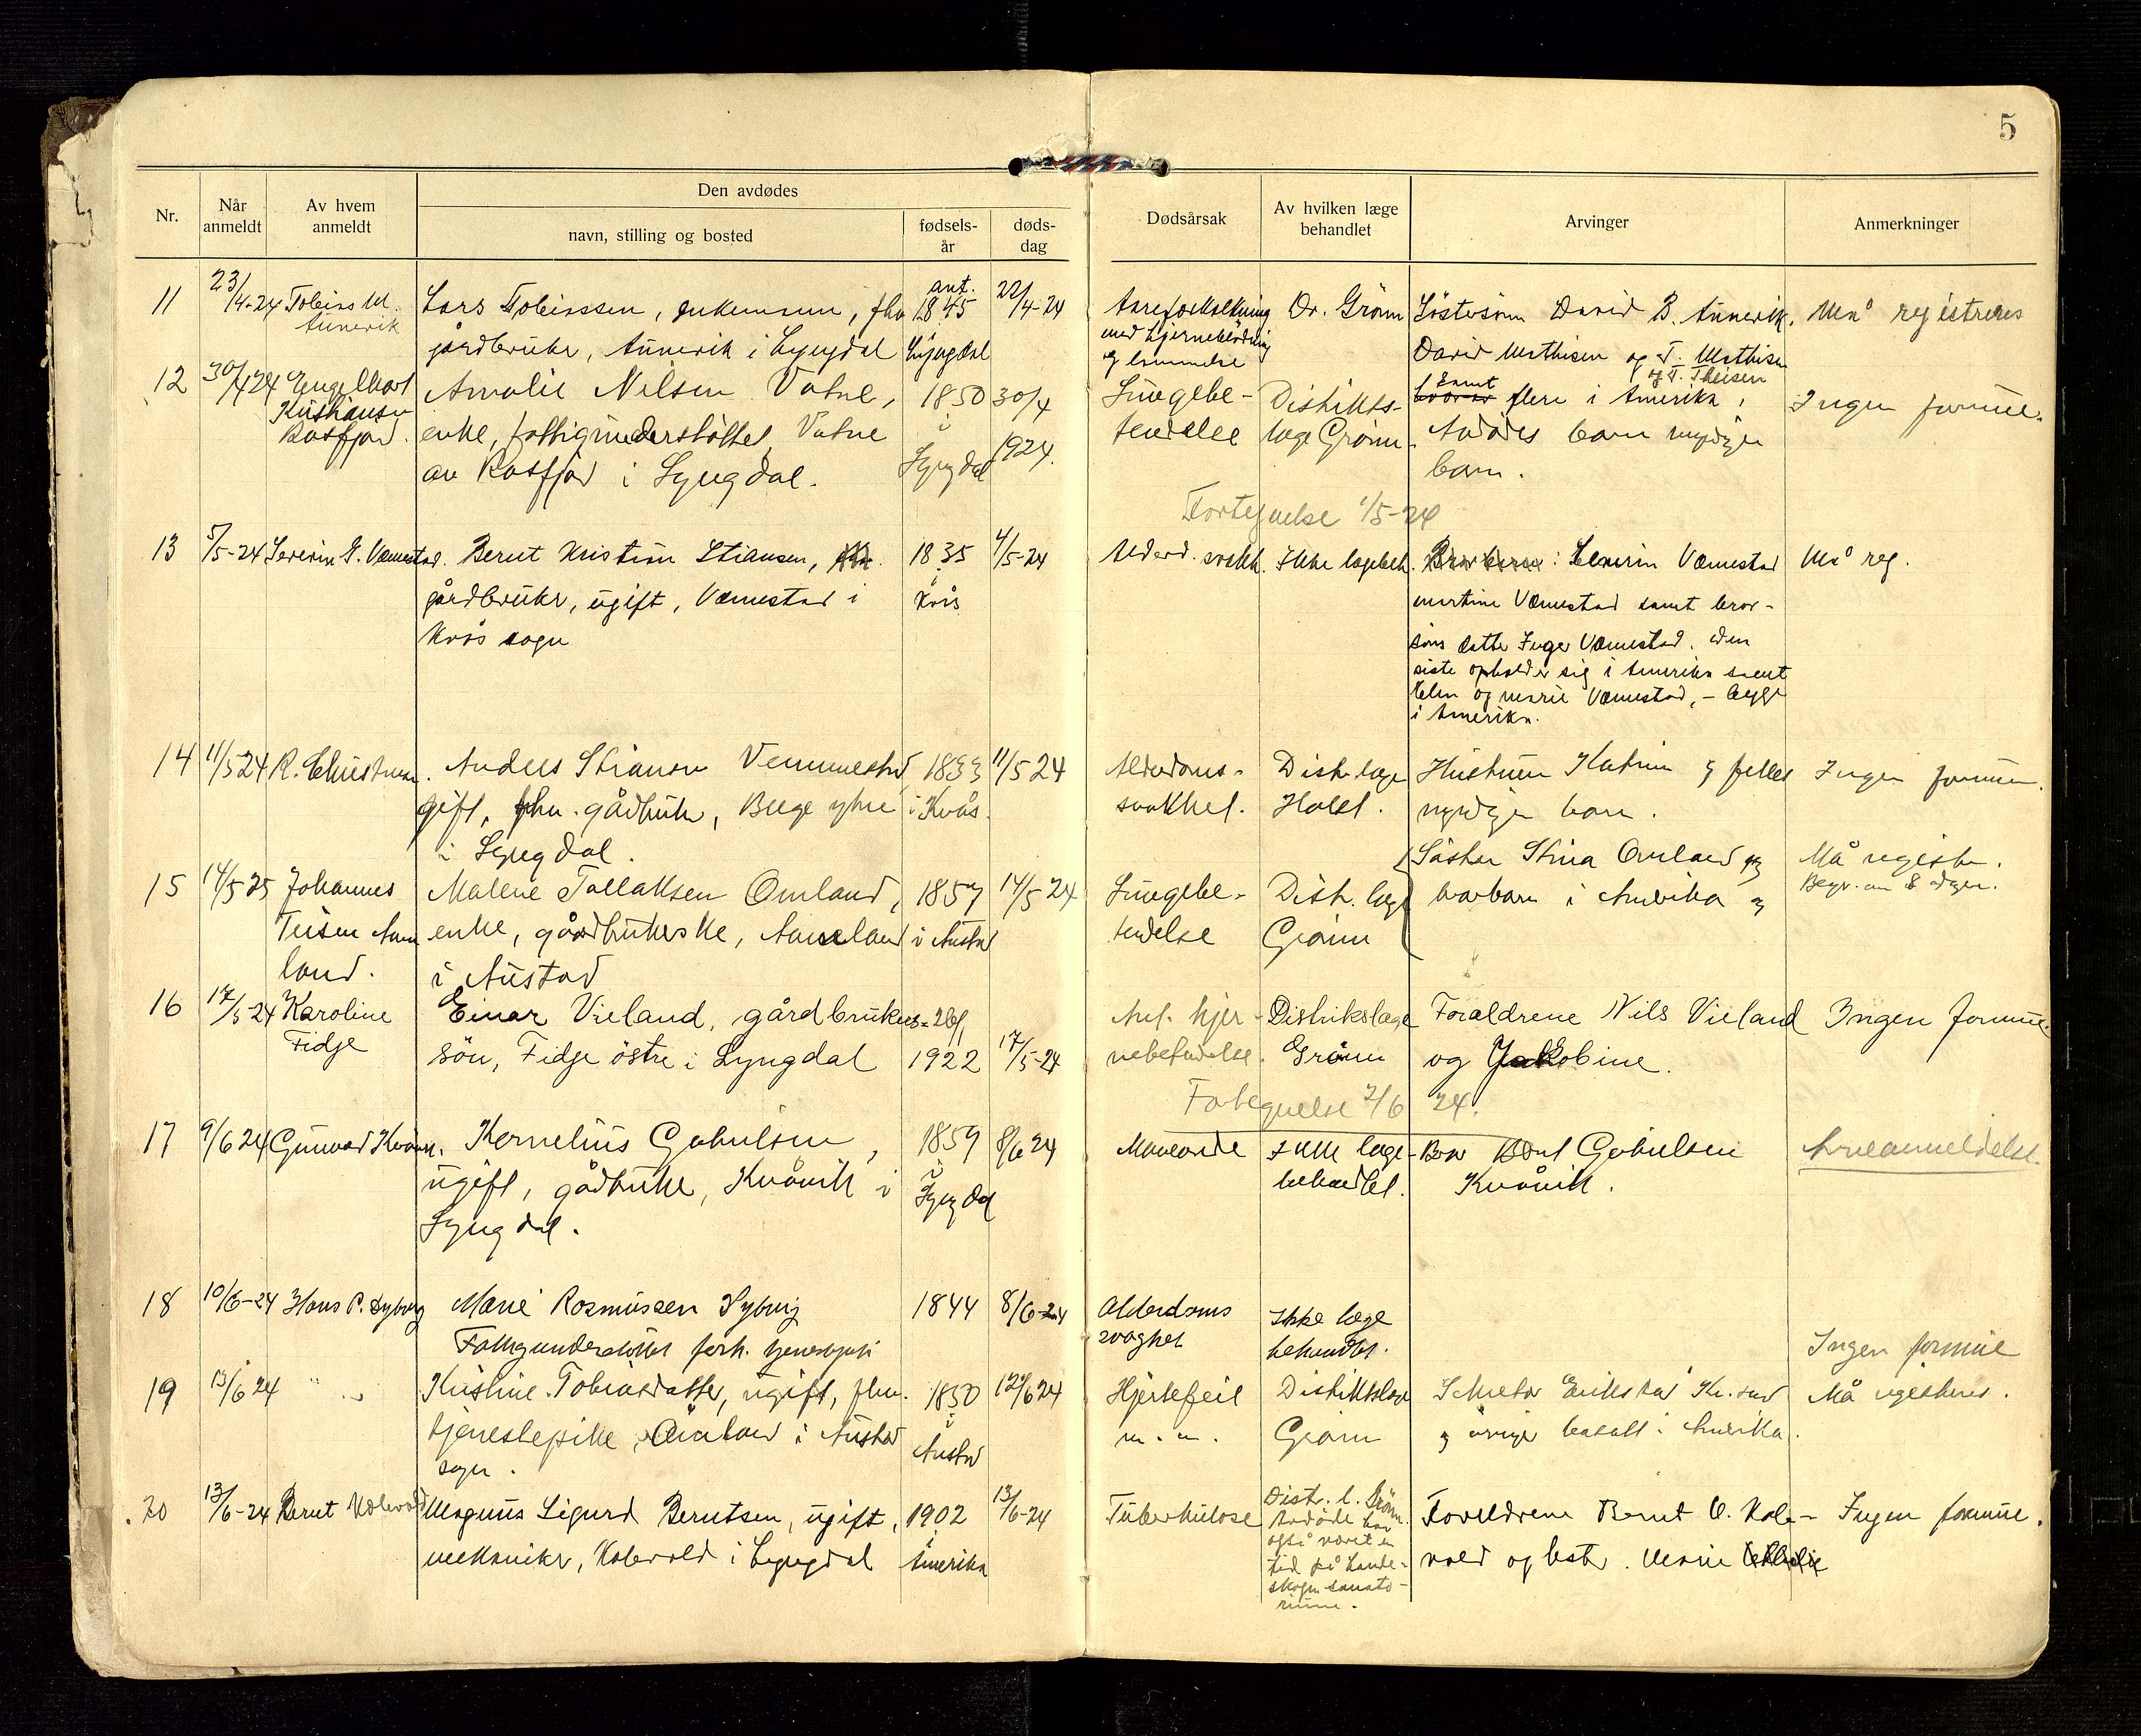 5
Nr.
Når anmeldt
Av hvem anmeldt
Den avdødes
navn, stilling og bosted
fødsels-år
døds-dag
Dødsårsak
Av hvilken læge behandlet
Arvinger
Anmerkninger
11 23/4-24 Tobias M. Lars Tobiassen, enkemann, fhv. ant. 1845 22/4-24 Dr. Grönn Søstersön David B. Aunevik. Må registreres
Aunevik gårdbruker, Aunevik i Lyngdal Lyngdal med hjerneblödning David Mathisen og T. Mathisen
og lammelse og T. Theisen
12 30/4 24 Engelhart Amalie Nilsen Vatne, 1850 30/4 Lungebe- Distrikts- samt flere i Amerika, Ingen formue.
Kristiansen enke, fattigunderstöttet, Vatne i 1924. tendelse læge Grönn. Avdødes barn myndige
Rosfjord. av Rosfjord i Lyngdal. Lyngdal barn.
Fortegnelse 1/5-24
13 5/5-24 Severin G. Vemestad. Bernt Kristian Stiansen, 1835 4/5-24 Alderd. svakh. Ikke lægebeh. Severin Vemestad Må reg.
gårdbruker, ugift, Vemestad i i Kvås martine Vemestad samt bror-
Kvås sogn
söns datter Inger Vemestad. Den
siste opholder sig i Amerika samt
og marie Vemestad, - begge
i Amerika.
14 11/5 24 R. Christensen. Anders Stiansen Vemmestad, 1833 11/5 24 Alderdoms- Distr. læge Hustruen Katrine og felles Ingen formue.
gift, fhv. gårdbruker, Berge ytre i Kvås. svakhet. Holst. myndige barn.
i Lyngdal.
15 14/5 25 Johannes Malene Tallaksen Omland, 1857 14/5 24 Lungebe- Distr. læge Søster Stina Omland og Må registr.
Teisen Aam enke, gårdbrukerske, Aamland i Austad tendelse Grönn brorbarn i Amerika og Begr. om 8 dager.
land. i Austad
16 17/5-24 Karoline Einar Vieland, gårdbrukers- 26/1 Ant. hjer- Distriktslæge Foraldrene Nils Vieland Ingen formue.
Fidje sön, Fidje östre i Lyngdal 1922 17/5-24 nebetendelse. Grönn og Jakobine.
Fortegnelse 2/6 24.
17 9/6 24 Gunvald Kvåvik. Kornelius Gabrielsen, 1859 8/6 24 Mavesyke Ikke læge- Bror Bernt Gabrielsen Arveanmeldelse.
ugift, gårdbruker, Kvåvik i i behandlet. Kvåvik.
Lyngdal. Lyngdal
18 10/6-24 Hans P. Dyborg Marie Rasmussen Dyborg 1844 8/6-24 Alderdoms Ikke læge
Fattigunderstöttet forh. tjenestepike svaghet behandlet. Ingen formue
19 13/6 24 " " Kristine Tobiasdatter, ugift, fhv. 1850 12/6 24 Hjertefeil Distriktslæge Må registreres.
tjenestepike, i Austad i m. m. Grönn og övrige bosatt i Amerika.
sogn. Austad
20 13/6-24 Bernt Kolevold Magnus Sigurd Berntsen, ugift, 1902 13/6-24 Tuberkulose Distr. l. Grönn. Foreldrene Bernt O. Kole- Ingen formue.
mekaniker, Kolevold i Lyngdal i Amerika Avdøde har vold og hustr. Marie
også været en
tid på Lande-
skogen sanato-
rium.